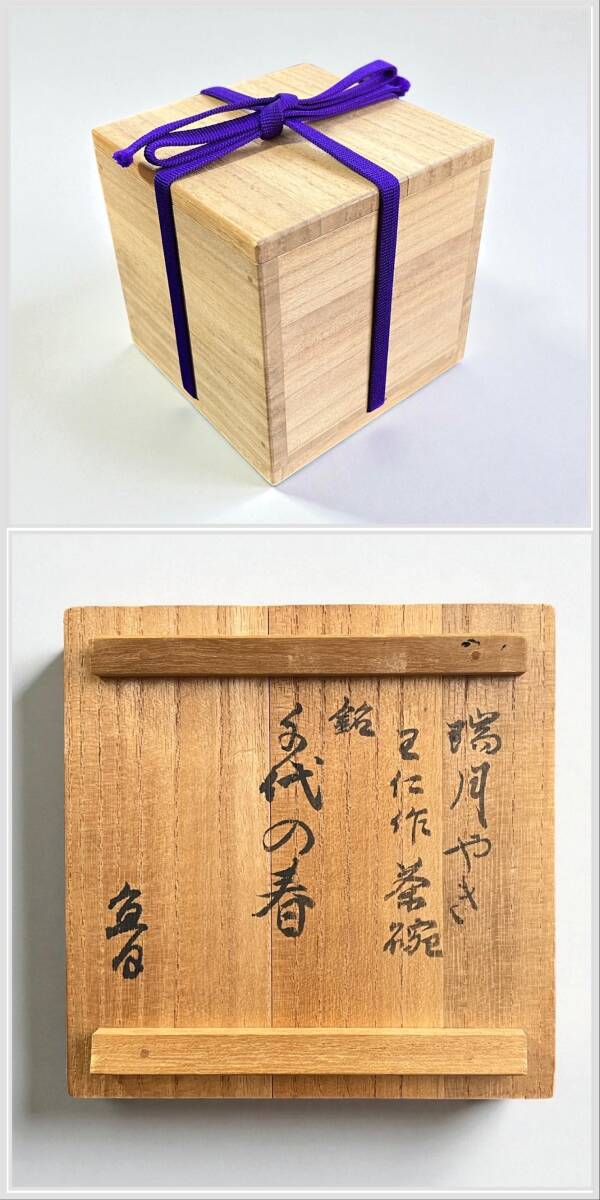 瑞月やき
王仁作 茶碗
銘
千代の春